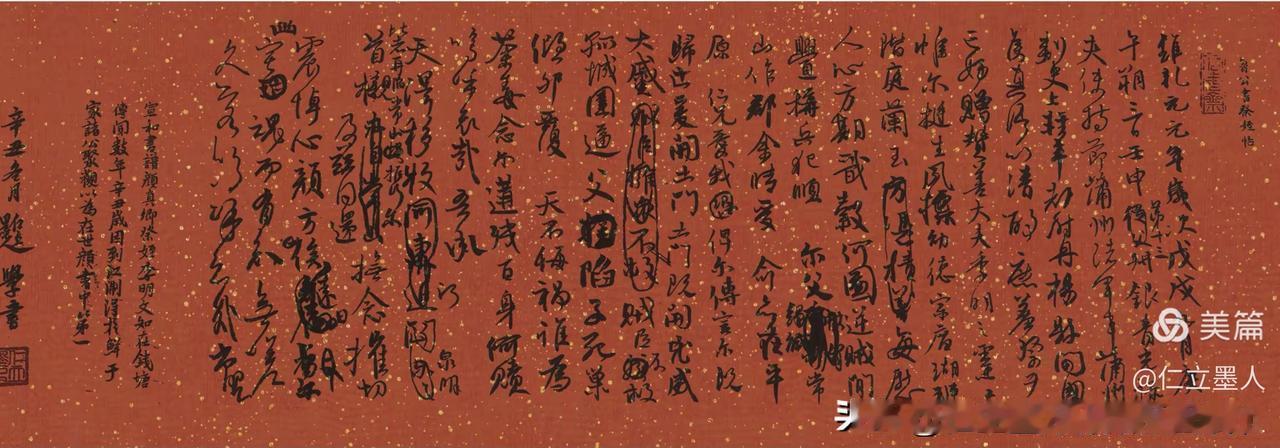 公書祭姪帖
維乾元元年歲次戊戌九月庚
午朔三日壬申第十三叔銀青光祿
夫使持節蒲州諸軍事蒲州
刺史上輕車都尉丹楊縣開國
侯真卿以清酌庶羞祭于
亡姪贈贊善大夫季明之靈曰
惟爾挺生夙標幼德宗廟瑚璉
階庭蘭玉方憑積善每慰
人心方期戩穀何圖逆賊間
釁稱兵犯順爾父竭誠常
山作郡余時受命亦在平
原仁兄愛我俾爾傳言爾既
歸止爰開土門土門既開凶威
大蹙賊臣擁眾不救賊臣不救
孤城圍逼父陷子死巢
傾卵覆天不悔禍誰為
荼毒念爾遘殘百身何贖
嗚呼哀哉吾承
天澤移牧河東近泉明
比者再陷常山攜爾
首櫬及茲同還撫念摧切
震悼心顏方俟遠日卜爾
幽宅魂而有知無嗟
久客嗚呼哀哉尚饗
宣和書譜顏真卿祭姪季明文知在錢塘
傳聞數年辛丑歲因到江浙得於鮮于
家諸公聚觀以為在世顏書中第一
辛丑冬月
學書
美篇
@仁立墨人
头